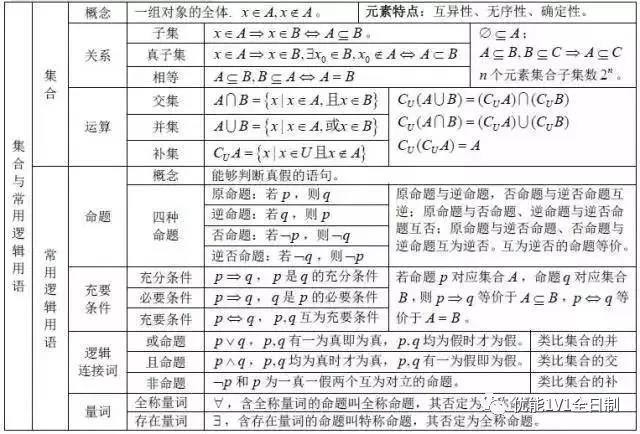 集合与常用逻辑用语
集合
概念
一组对象的全体. x∈A, x∉A。
元素特点：互异性、无序性、确定性。
关系
子集
x∈A⇒x∈B⇔A⊆B。
∅⊆A；
真子集
x∈A⇒x∈B,∃x₀∈B, x₀∉A⇔A⊂B
A⊆B, B⊆C⇒A⊆C
相等
A⊆B, B⊆A⇔A=B
n个元素集合子集数2ⁿ。
运算
交集
A∩B={x|x∈A,且x∈B}
C_U(A∪B)=(C_UA)∩(C_UB)
并集
A∪B={x|x∈A,或x∈B}
C_U(A∩B)=(C_UA)∪(C_UB)
补集
C_UA={x|x∈U且x∉A}
C_U(C_UA)=A
常用逻辑用语
命题
概念
能够判断真假的语句。
四种
命题
原命题：若p，则q
逆命题：若q，则p
否命题：若¬p，则¬q
逆否命题：若¬q，则¬p
原命题与逆命题，否命题与逆否命题互
逆；原命题与否命题、逆命题与逆否命
题互否；原命题与逆否命题、否命题与
逆命题互为逆否。互为逆否的命题等价。
充要
条件
充分条件
p⇒q，p是q的充分条件
必要条件
p⇒q，q是p的必要条件
充要条件
p⇔q，p,q互为充要条件
若命题p对应集合A，命题q对应集合
B，则p⇒q等价于A⊆B，p⇔q等
价于A=B。
逻辑
连接词
或命题
p∨q，p,q有一为真即为真，p,q均为假时才为假。
类比集合的并
且命题
p∧q，p,q均为真时才为真，p,q有一为假即为假。
类比集合的交
非命题
¬p和p为一真一假两个互为对立的命题。
类比集合的补
量词
全称量词
∀，含全称量词的命题叫全称命题，其否定为
存在量词
∃，含存在量词的命题叫特称命题，其否定为全称命题。
优能1V1全日制